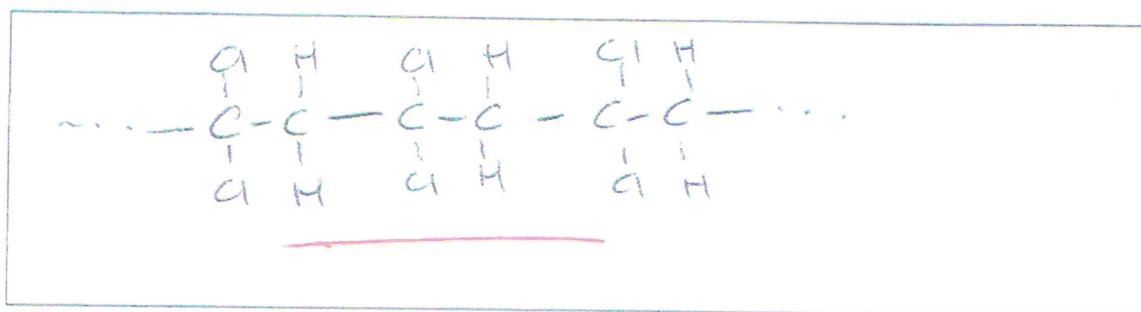 Cl H Cl H Cl H
... — C - C — C - C - C - C — ...
Cl H Cl H Cl H